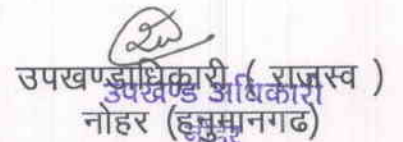 उपखण्डाधिकारी ( राजस्व )
उपखण्ड अधिकारी
नोहर (हनुमानगढ)
नोहर